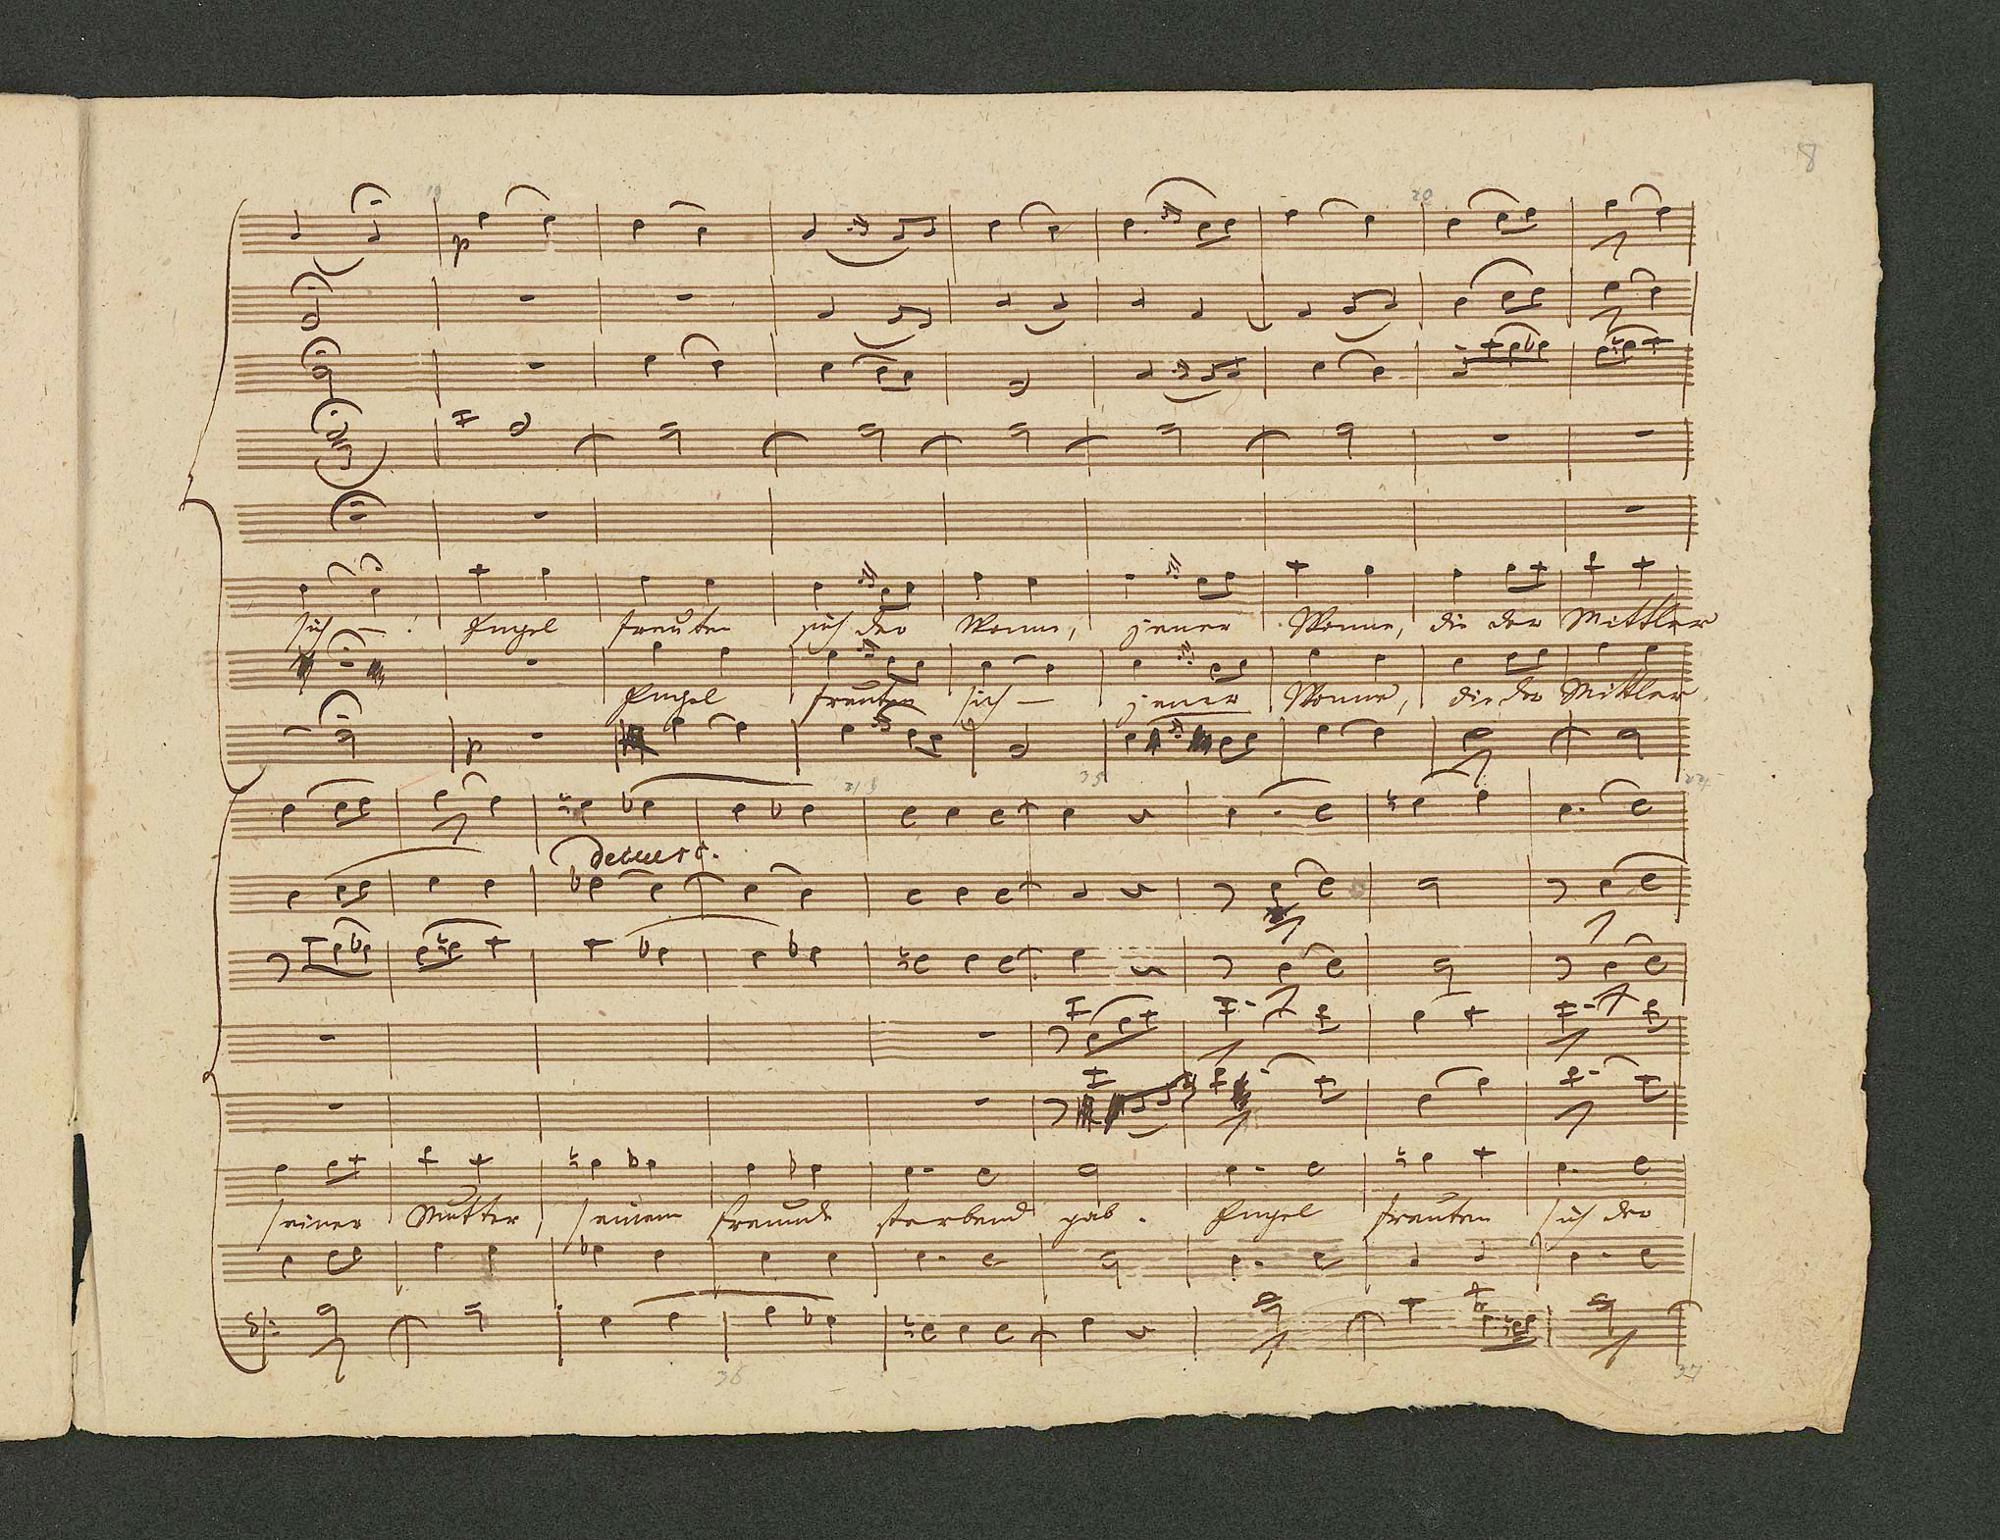 8
19
20
p
sich — !
Engel freuten sich der Wonne, jener Wonne, die der Mittler
Engel freuten sich — jener Wonne, die der Mittler
p
35
decresc.
seiner Mutter, seinem Freunde sterbend gab. Engel freuten sich der
36
37